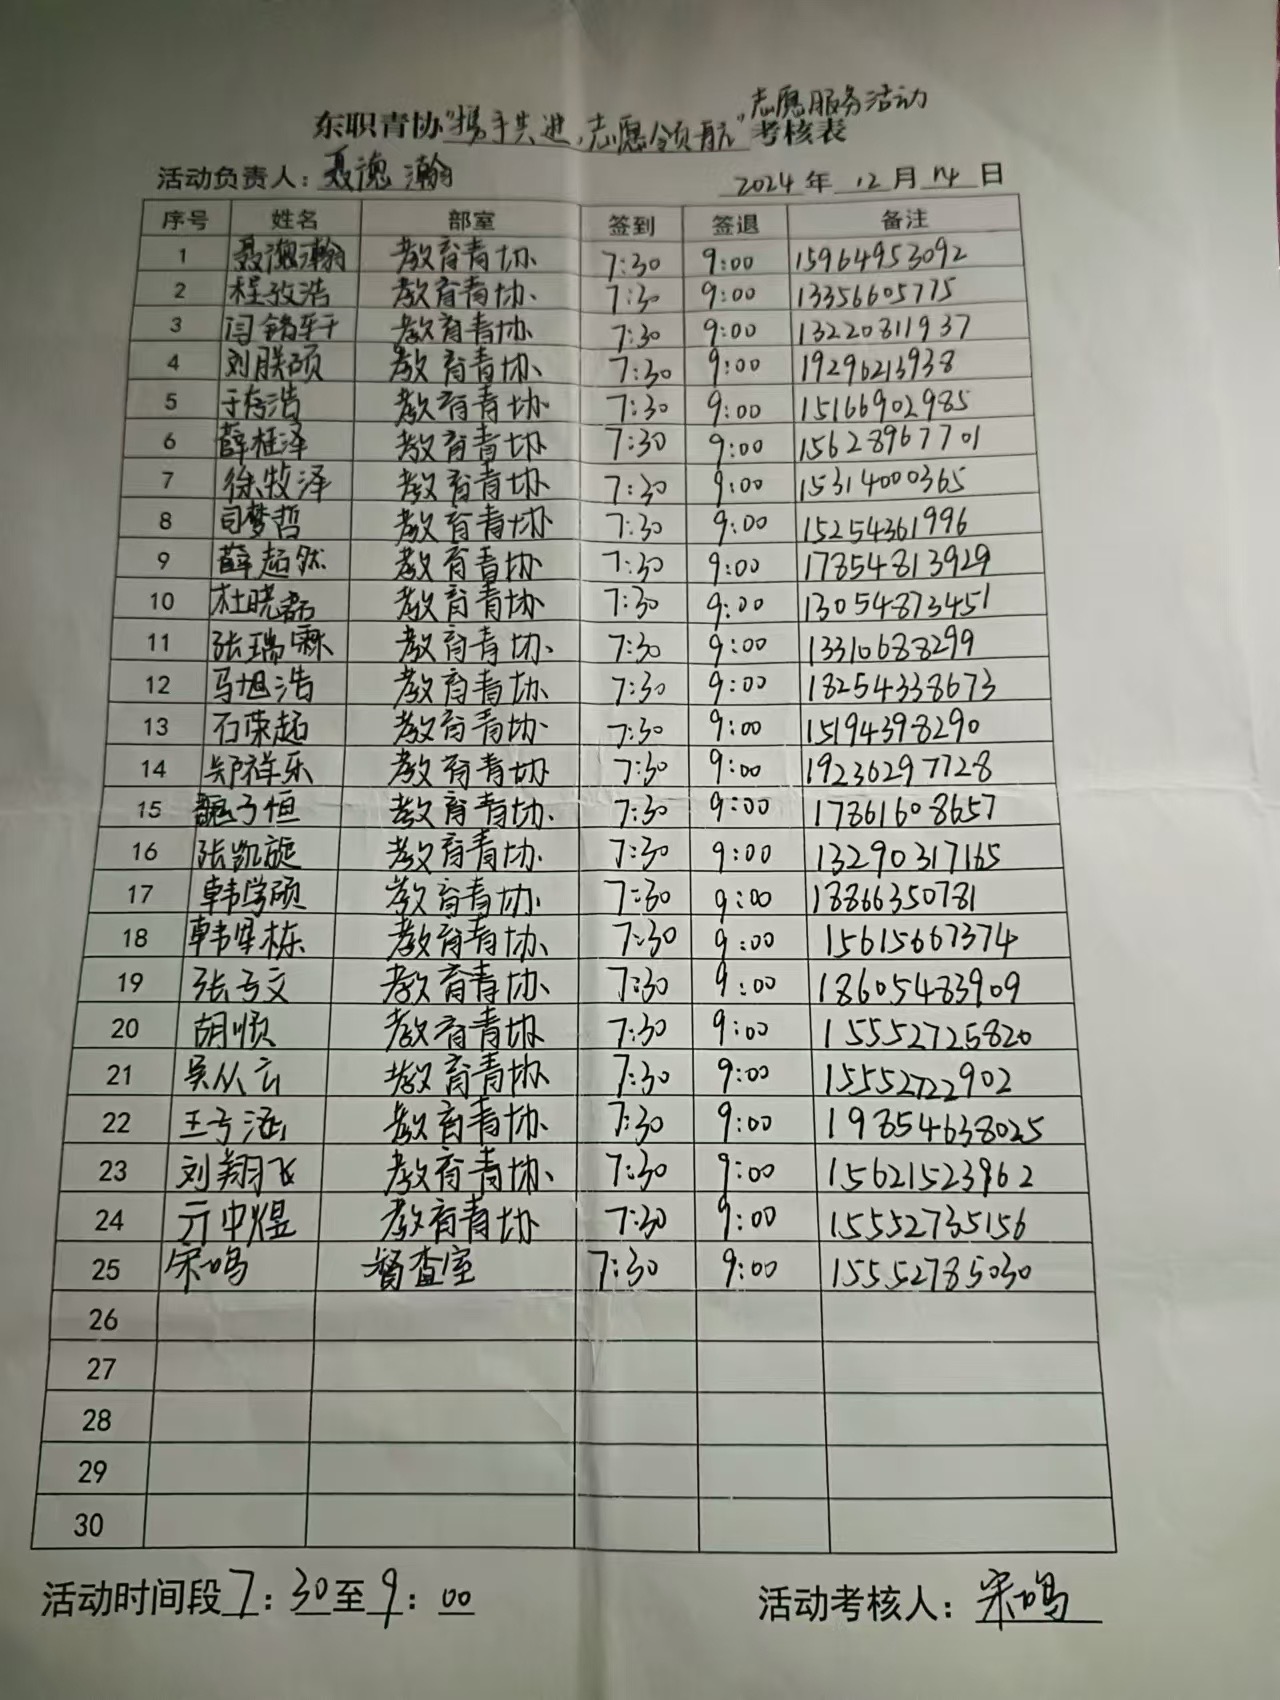 志愿服务活动
东职青协"携手共进,志愿领航"考核表
活动负责人:聂德瀚 2024年12月14日
序号 姓名 部室 签到 签退 备注
1 聂德瀚 教育青协 7:30 9:00 15964953092
2 程孜浩 教育青协 7:30 9:00 13356605775
3 闫铭轩 教育青协 7:30 9:00 13220811937
4 刘朕硕 教育青协 7:30 9:00 19296213938
5 于存浩 教育青协 7:30 9:00 15166902985
6 薛桂泽 教育青协 7:30 9:00 15628967701
7 徐牧泽 教育青协 7:30 9:00 15314000365
8 司梦哲 教育青协 7:30 9:00 15254361996
9 薛超然 教育青协 7:30 9:00 17854813929
10 杜晓磊 教育青协 7:30 9:00 13054873451
11 张瑞霖 教育青协 7:30 9:00 13310688299
12 马旭浩 教育青协 7:30 9:00 18254338673
13 石荣起 教育青协 7:30 9:00 15194398290
14 郑祥乐 教育青协 7:30 9:00 19236297728
15 甄子恒 教育青协 7:30 9:00 17861608657
16 张凯旋 教育青协 7:30 9:00 13290317165
17 韩学硕 教育青协 7:30 9:00 18866350781
18 韩军栋 教育青协 7:30 9:00 15615667374
19 张子文 教育青协 7:30 9:00 18605483909
20 胡顺 教育青协 7:30 9:00 15552725820
21 吴从云 教育青协 7:30 9:00 15552722902
22 王子涵 教育青协 7:30 9:00 19854638025
23 刘翔飞 教育青协 7:30 9:00 15621523962
24 亓中煜 教育青协 7:30 9:00 15552735156
25 宋鸣 督查室 7:30 9:00 15552785030
26
27
28
29
30
活动时间段7:30至9:00 活动考核人:宋鸣